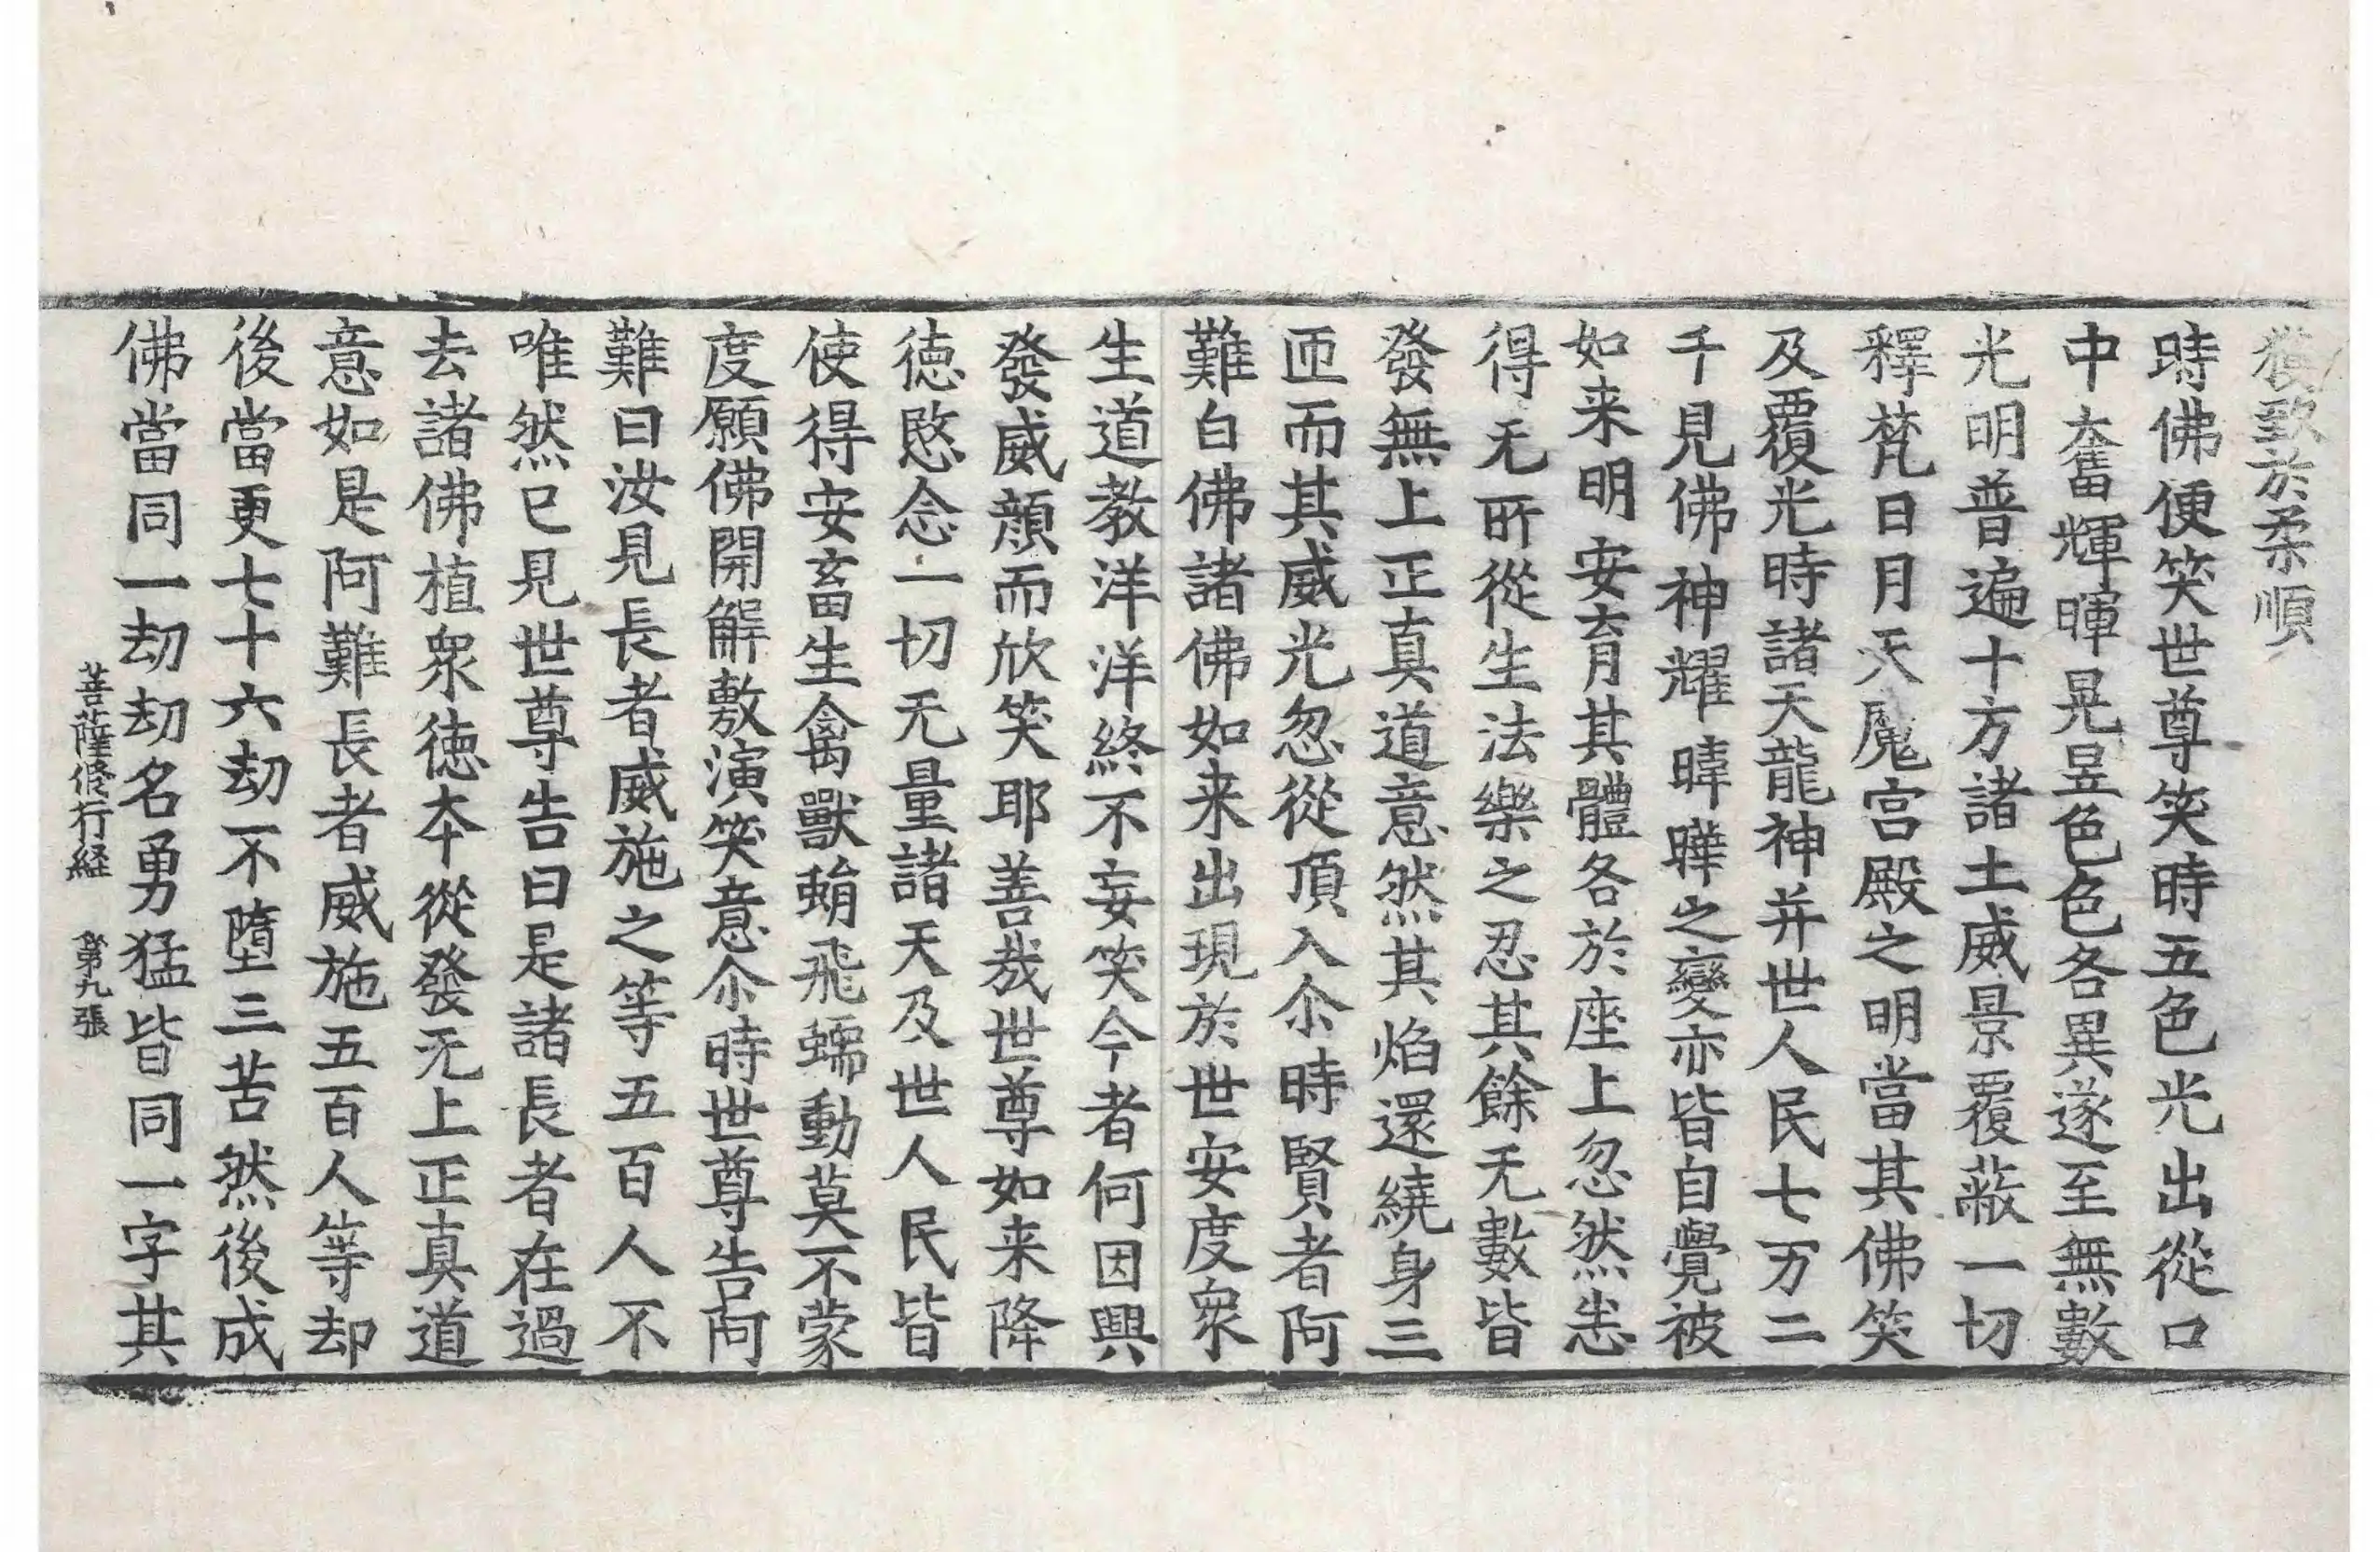 獲致於柔順
時佛便笑世尊笑時五色光出從口
中奮輝暉晃昱色色各異遂至無數
光明普遍十方諸土威景覆蔽一切
釋梵日月天魔宮殿之明當其佛笑
及覆光時諸天龍神并世人民七万二
千見佛神耀暐曄之變亦皆自覺被
如来明安育其體各於座上忽然恚
得无所從生法樂之忍其餘无數皆
發無上正真道意然其焰還繞身三
匝而其威光忽從頂入尒時賢者阿
難白佛諸佛如来出現於世安度衆
生道教洋洋終不妄笑今者何因興
發威顔而欣笑耶善哉世尊如来降
徳愍念一切无量諸天及世人民皆
使得安畜生禽獸蜎飛蠕動莫不蒙
度願佛開解敷演笑意尒時世尊告阿
難曰汝見長者威施之等五百人不
唯然已見世尊告曰是諸長者在過
去諸佛植衆徳本從發无上正真道
意如是阿難長者威施五百人等却
後當更七十六劫不墮三苦然後成
佛當同一劫劫名勇猛皆同一字其
菩薩修行経 第九張